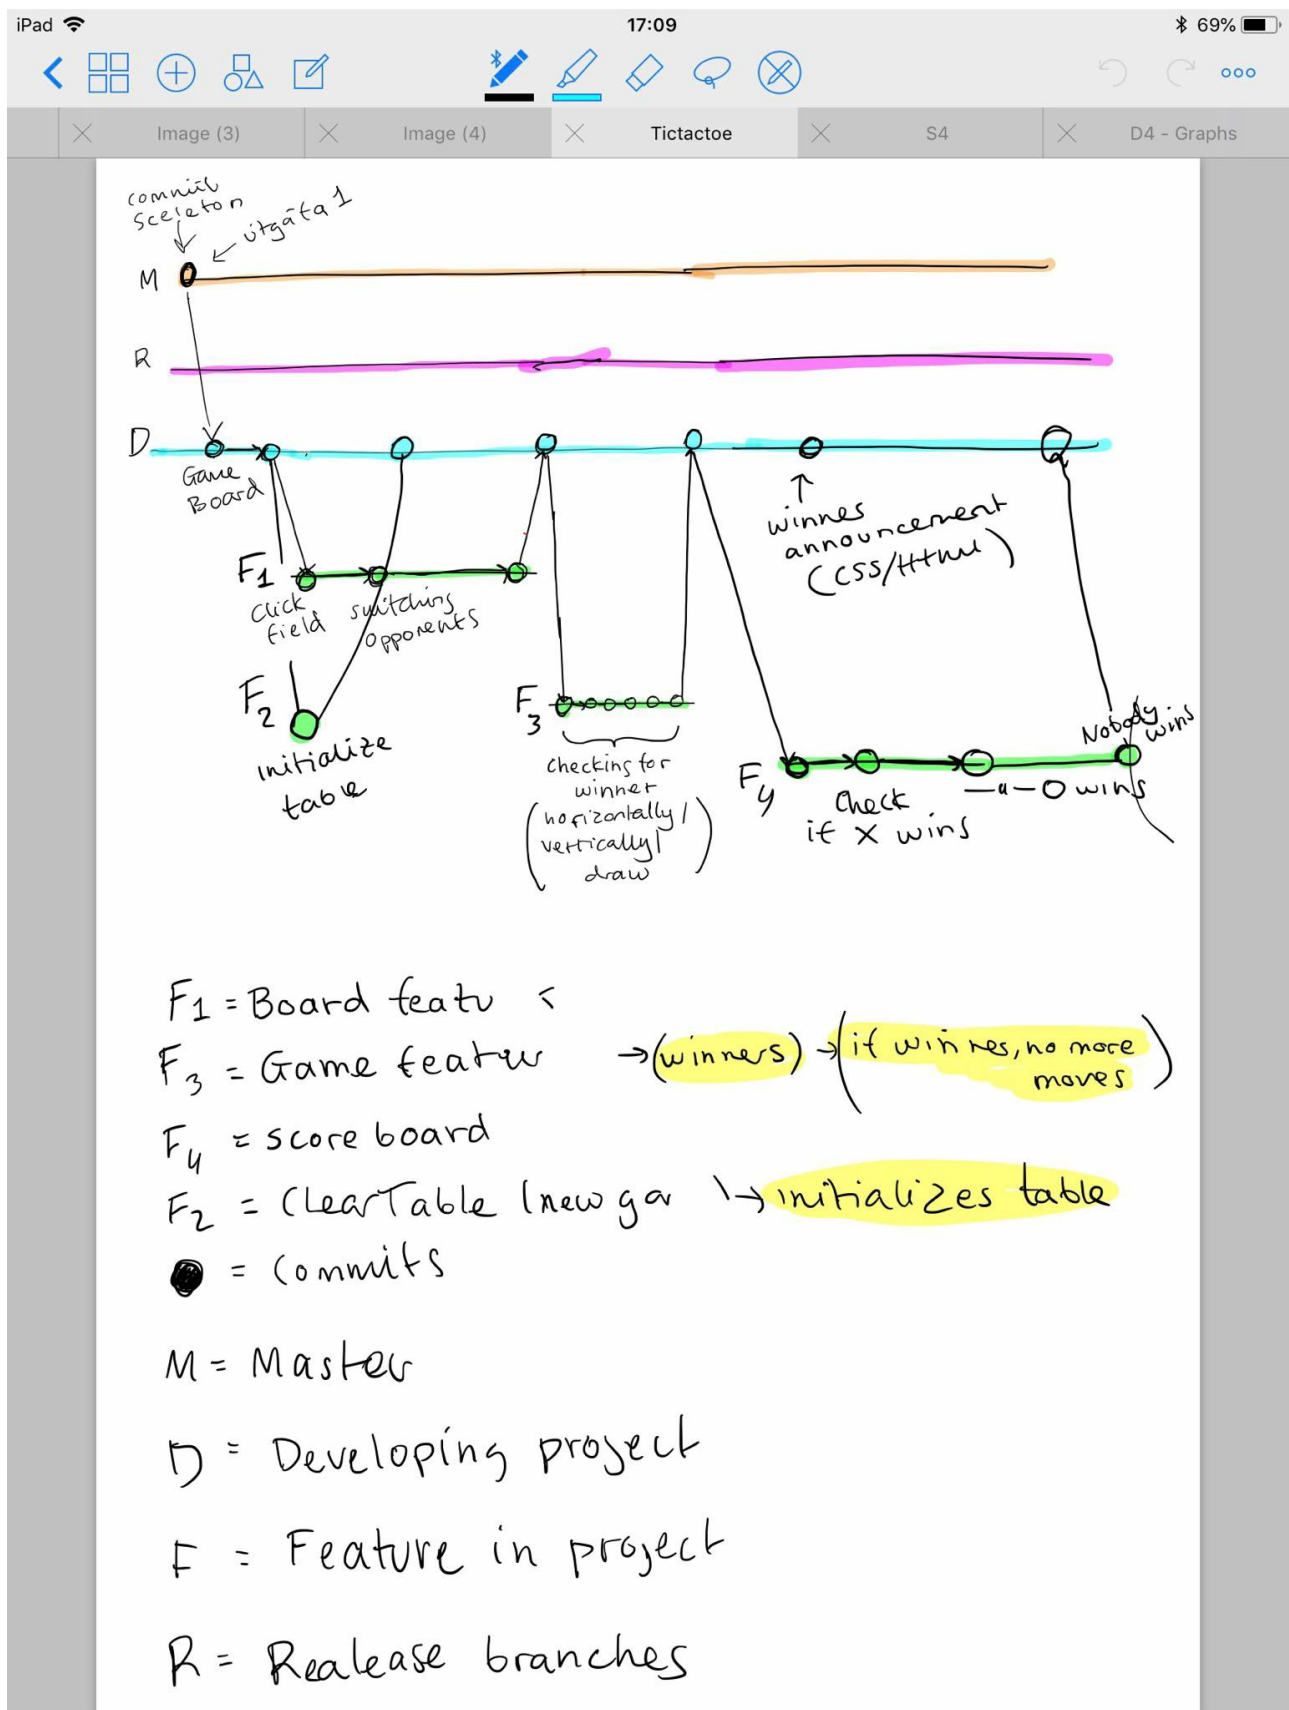 iPad 17:09 69%
Image (3) Image (4) Tictactoe S4 D4 - Graphs
commit
Sceleton
útgáta 1
M
R
D
Game
Board
winnes
announcement
(CSS/HTML)
F1
Click
field
switching
opponents
F2
initialize
table
F3
Checking for
winner
(horizontally/
vertically/
draw)
F4
Check
if X wins
—"— O wins
Nobody
wins
F1 = Board featu
F3 = Game featur → (winners) → (if winnes, no more
moves)
F4 = score board
F2 = ClearTable (new ga → initializes table
= Commits
M = Master
D = Developing project
F = Feature in project
R = Realease branches